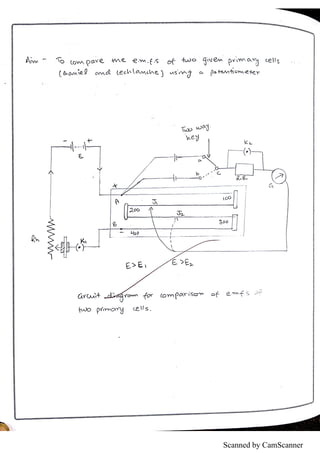 Aim - To compare the e.m.fs of two given primary cells
(Daniel and Lechlanche) using a potentiometer
Two way
key
K2
- +
E
a
b
c
R.B.
G
+
A
J1
100
200
J2
300
B
400
Rh
K1
E>E1 E>E2
Circuit diagram for comparison of e.m.fs of
two primary cells.
Scanned by CamScanner